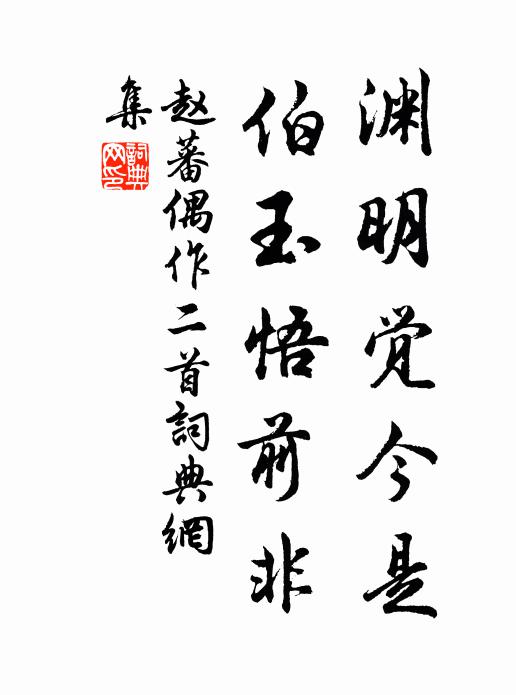 渊明觉今是
伯玉悟前非
赵蕃偶作二首詞典網
集
詞典网印